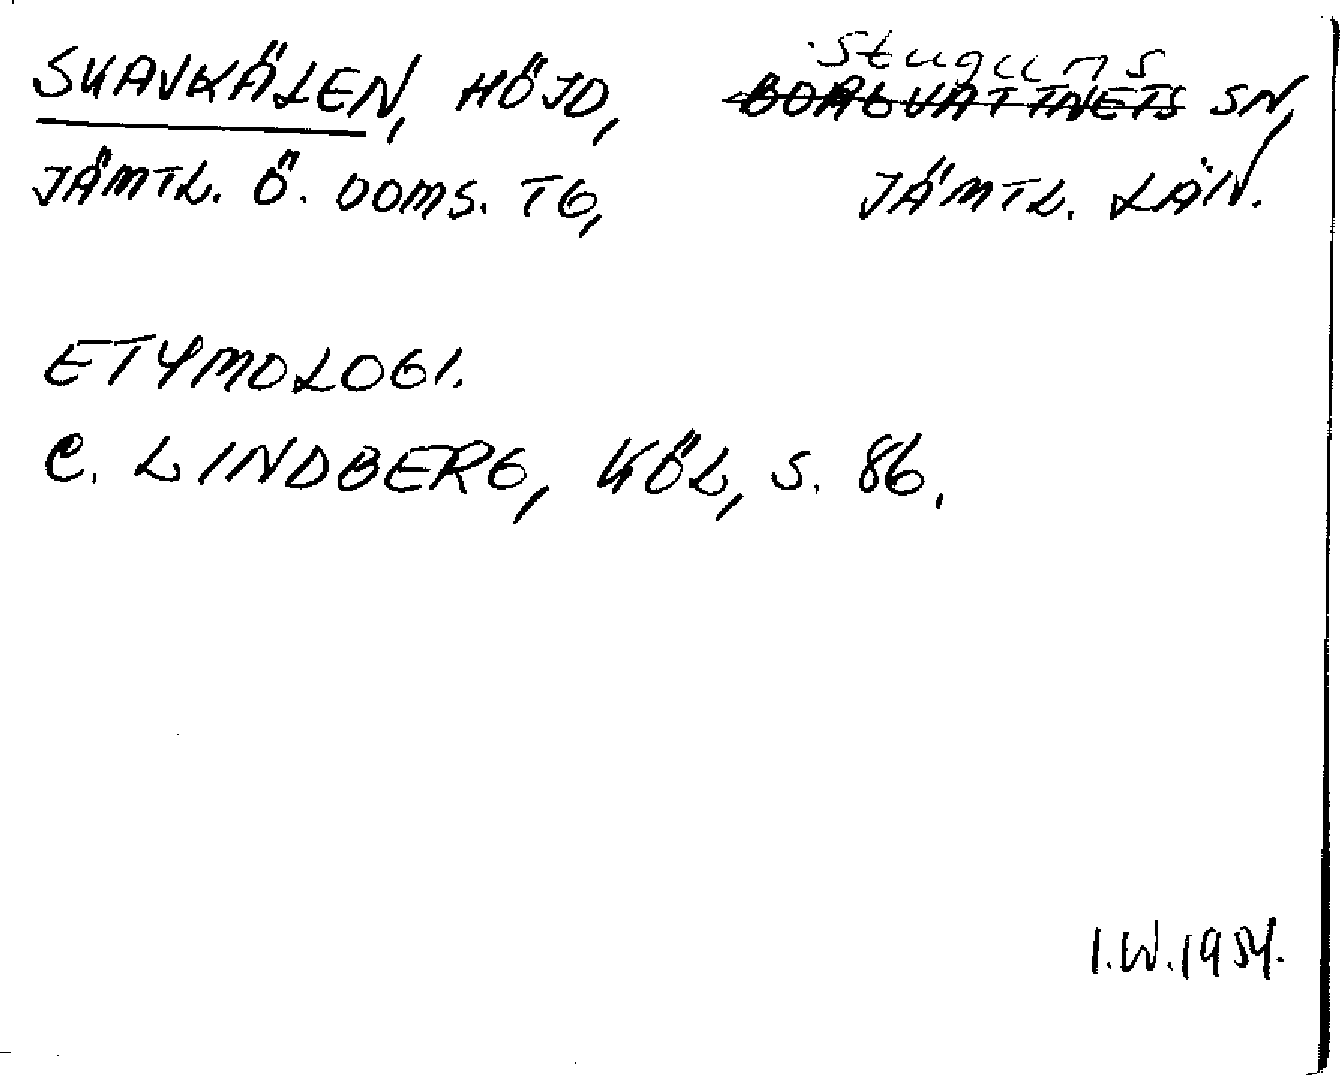 Stuguns
SKAJKÄLEN, HÖJD, BORGVATTNETS SN,
JÄMTL. Ö. DOMS. TG, JÄMTL. LÄN.
ETYMOLOGI.
C. LINDBERG, KÖL, S. 86.
I.W.1954.